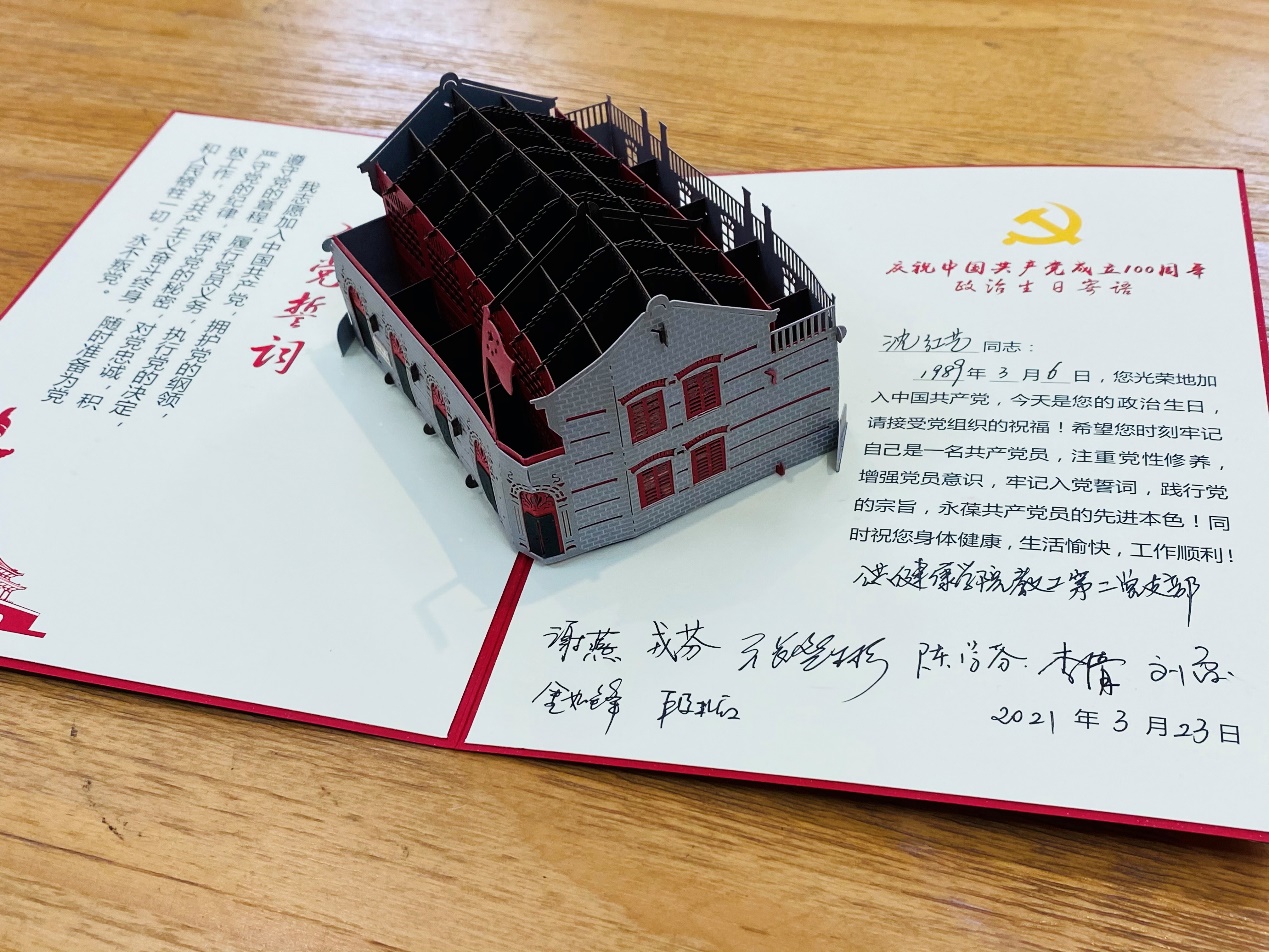 党誓词
我志愿加入中国共产党，拥护党的纲领，
遵守党的章程，履行党员义务，执行党的决定，
严守党的纪律，保守党的秘密，对党忠诚，积
极工作，为共产主义奋斗终身，随时准备为党
和人民牺牲一切，永不叛党。
庆祝中国共产党成立100周年
政治生日寄语
沈红芳同志：
1989年3月6日，您光荣地加
入中国共产党，今天是您的政治生日，
请接受党组织的祝福！希望您时刻牢记
自己是一名共产党员，注重党性修养，
增强党员意识，牢记入党誓词，践行党
的宗旨，永葆共产党员的先进本色！同
时祝您身体健康，生活愉快，工作顺利！
健康学院教工第二党支部
谢燕 戎芬 陈学芬 李倩
金如锋
2021年3月23日